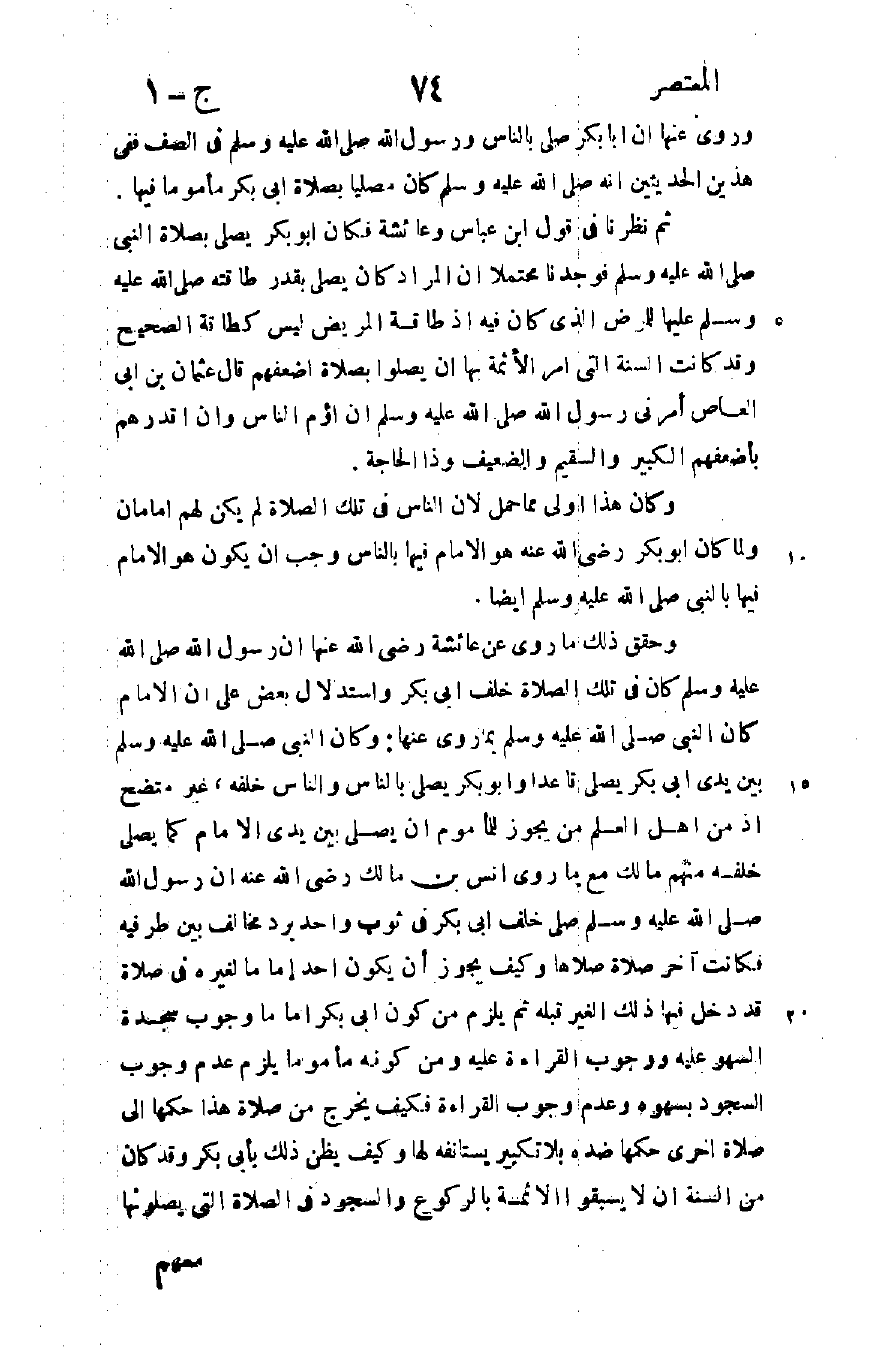 المعتصر ٧٤ ج - ١
وروى عنها ان ابا بكر صلى بالناس ورسول الله صلى الله عليه وسلم فى الصف ففى
هذين الحديثين انه صلى الله عليه وسلم كان مصليا بصلاة ابى بكر مأموما فيها .
ثم نظرنا فى قول ابن عباس وعائشة فكان ابوبكر يصلى بصلاة النبى
صلى الله عليه وسلم فوجدنا محتملا ان المراد كان يصلى بقدر طاقته صلى الله عليه
٥ وسلم عليها للرض الذى كان فيه اذ طاقة المريض ليس كطاقة الصحيح
وقد كانت السنة التى امر الأئمة بها ان يصلوا بصلاة اضعفهم قال عثمان بن ابى
العاص أمرنى رسول الله صلى الله عليه وسلم ان اؤم الناس وان اقدرهم
بأضعفهم الكبير والسقيم والضعيف وذا الحاجة .
وكان هذا اولى مما حمل لان الناس فى تلك الصلاة لم يكن لهم امامان
١٠ ولما كان ابوبكر رضى الله عنه هو الامام فيها بالناس وجب ان يكون هو الامام
فيها بالنبى صلى الله عليه وسلم ايضا .
وحقق ذلك ما روى عن عائشة رضى الله عنها ان رسول الله صلى الله
عليه وسلم كان فى تلك الصلاة خلف ابى بكر واستدلال بعض على ان الامام
كان النبى صلى الله عليه وسلم بما روى عنها: وكان النبى صلى الله عليه وسلم
١٥ بين يدى ابى بكر يصلى قاعدا وابوبكر يصلى بالناس والناس خلفه ، غير متضح
اذ من اهل العلم من يجوز للأموم ان يصلى بين يدى الامام كما يصلى
خلفه منهم مالك مع ما روى انس بن مالك رضى الله عنه ان رسول الله
صلى الله عليه وسلم صلى خلف ابى بكر فى ثوب واحد برد مخالف بين طرفيه
فكانت آخر صلاة صلاها وكيف يجوز أن يكون احد إماما لغيره فى صلاة
٢٠ قد دخل فيها ذلك الغير قبله ثم يلزم من كون ابى بكر اماما وجوب سجدة
السهو عليه ووجوب القراءة عليه ومن كونه مأموما يلزم عدم وجوب
السجود بسهوه وعدم وجوب القراءة فكيف يخرج من صلاة هذا حكمها الى
صلاة اخرى حكمها ضده بلا تكبير يستانفه لها وكيف يظن ذلك بأبى بكر وقد كان
من السنة ان لا يسبقوا الائمة بالركوع والسجود فى الصلاة التى يصلونها
معهم